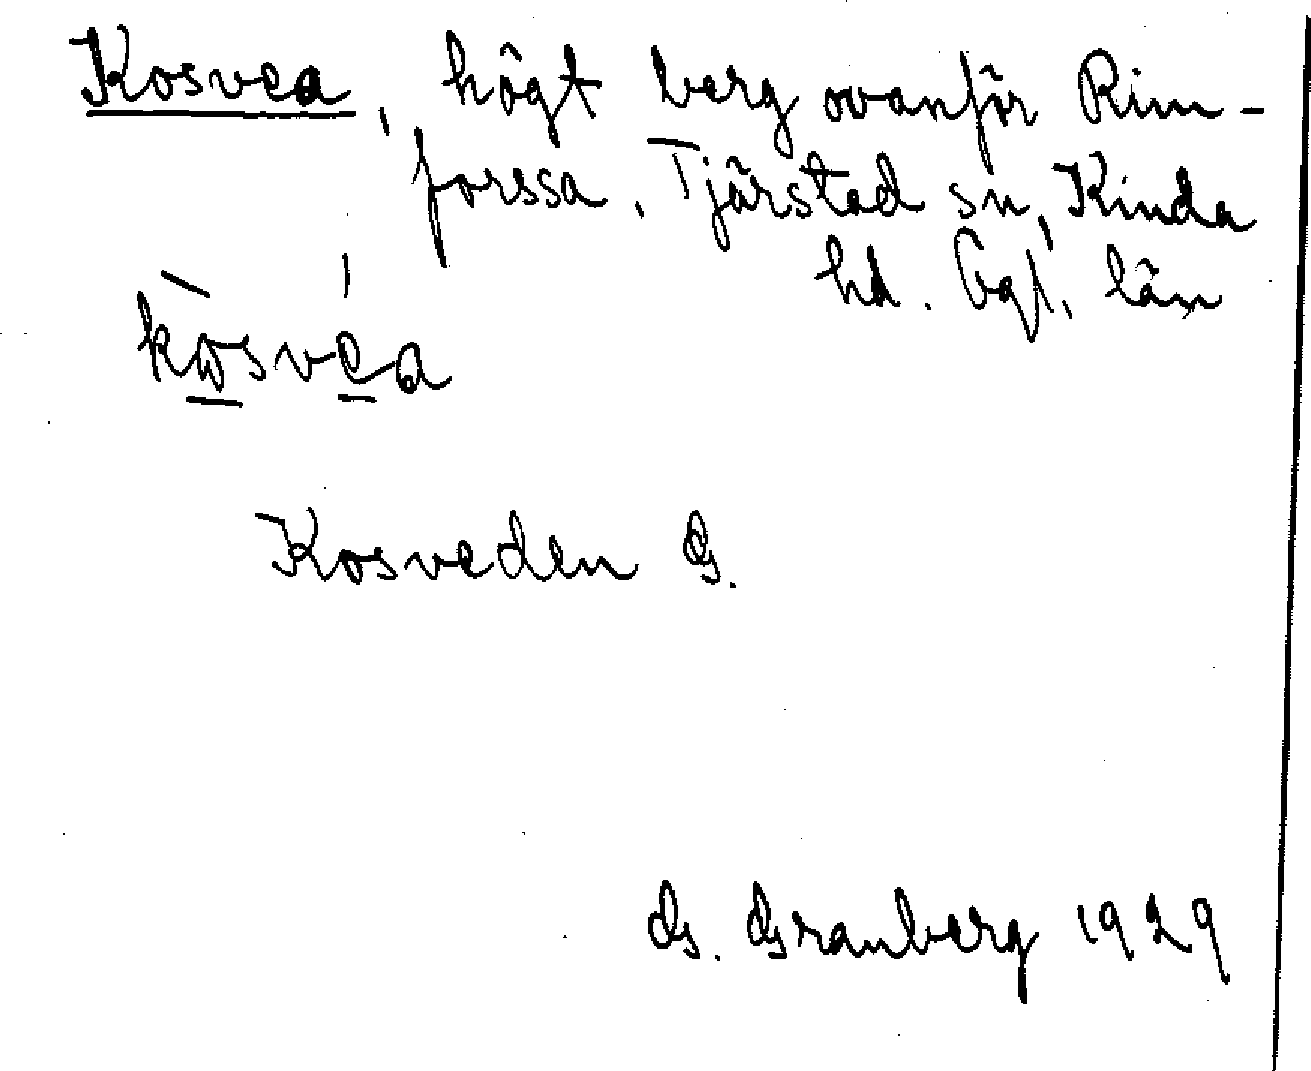 Kosvea, högt berg ovanför Rim-
forssa, Tjärstad sn, Kinda
hd. Ögl. län
kòsvéa
Kosveden G.
G. Granberg 1929